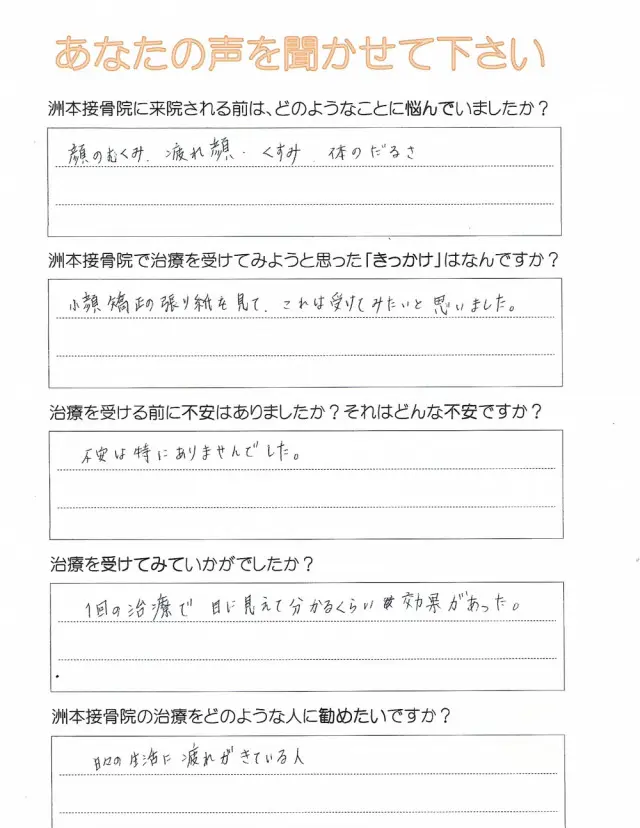 あなたの声を聞かせて下さい
洲本接骨院に来院される前は、どのようなことに悩んでいましたか？
顔のむくみ、疲れ顔・くすみ 体のだるさ
洲本接骨院で治療を受けてみようと思った「きっかけ」はなんですか？
小顔矯正の張り紙を見て、これは受けてみたいと思いました。
治療を受ける前に不安はありましたか？それはどんな不安ですか？
不安は特にありませんでした。
治療を受けてみていかがでしたか？
1回の治療で 目に見えて分かるくらい 効果があった。
洲本接骨院の治療をどのような人に勧めたいですか？
日々の生活に疲れがきている人